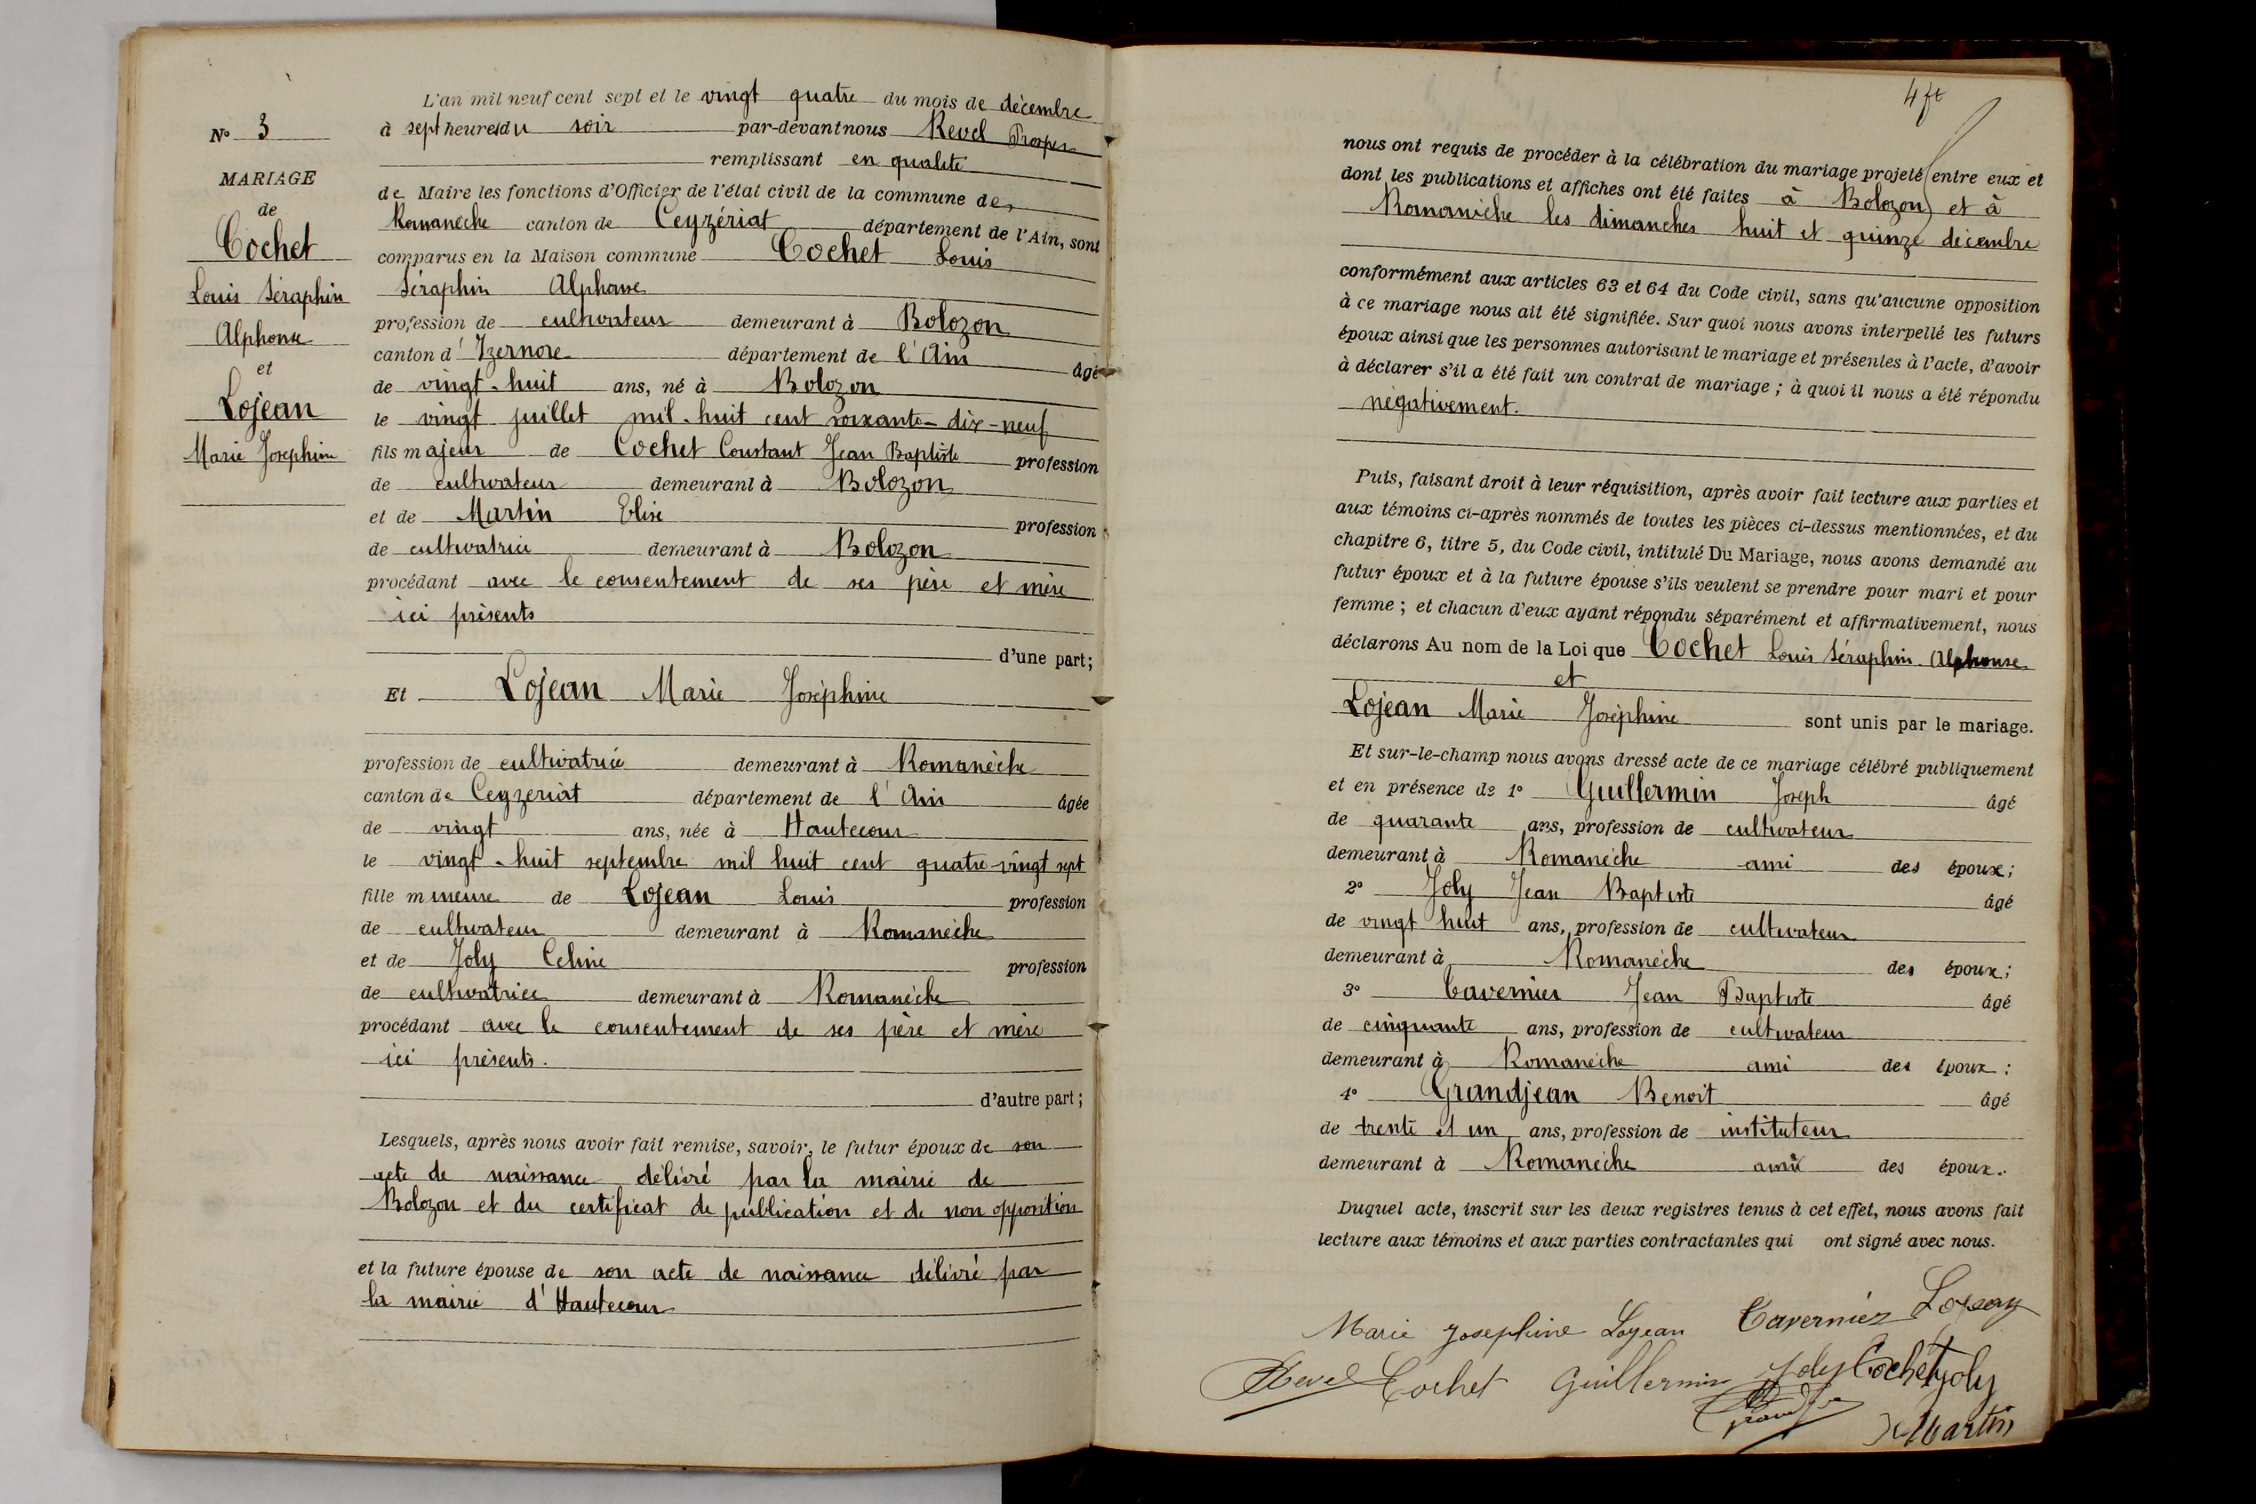 N° 3
MARIAGE
de
Cochet
Louis Séraphin
Alphonse
et
Lojean
Marie Joséphine
L'an mil neuf cent sept et le vingt quatre du mois de décembre
à sept heures du soir par-devant nous Revel Prosper
remplissant en qualité
de Maire les fonctions d'Officier de l'état civil de la commune de
Romanèche canton de Ceyzériat département de l'Ain, sont
comparus en la Maison commune Cochet Louis
Séraphin Alphonse
profession de cultivateur demeurant à Bolozon
canton d'Izernore département de l'Ain âgé
de vingt-huit ans, né à Bolozon
le vingt juillet mil-huit cent soixante-dix-neuf
fils majeur de Cochet Constant Jean Baptiste profession
de cultivateur demeurant à Bolozon
et de Martin Elise profession
de cultivatrice demeurant à Bolozon
procédant avec le consentement de ses père et mère
ici présents
d'une part;
Et Lojean Marie Joséphine
profession de cultivatrice demeurant à Romanèche
canton de Ceyzeriat département de l'Ain âgée
de vingt ans, née à Hautecour
le vingt-huit septembre mil huit cent quatre-vingt sept
fille mineure de Lojean Louis profession
de cultivateur demeurant à Romanèche
et de Joly Celine profession
de cultivatrice demeurant à Romanèche
procédant avec le consentement de ses père et mère
ici présents.
d'autre part;
Lesquels, après nous avoir fait remise, savoir, le futur époux de son
acte de naissance délivré par la mairie de
Bolozon et du certificat de publication et de non opposition
et la future épouse de son acte de naissance délivré par
la mairie d'Hautecour
4 ft
nous ont requis de procéder à la célébration du mariage projeté entre eux et
dont les publications et affiches ont été faites à Bolozon et à
Romanèche les dimanches huit et quinze décembre
conformément aux articles 63 et 64 du Code civil, sans qu'aucune opposition
à ce mariage nous ait été signifiée. Sur quoi nous avons interpellé les futurs
époux ainsi que les personnes autorisant le mariage et présentes à l'acte, d'avoir
à déclarer s'il a été fait un contrat de mariage; à quoi il nous a été répondu
négativement.
Puis, faisant droit à leur réquisition, après avoir fait lecture aux parties et
aux témoins ci-après nommés de toutes les pièces ci-dessus mentionnées, et du
chapitre 6, titre 5, du Code civil, intitulé Du Mariage, nous avons demandé au
futur époux et à la future épouse s'ils veulent se prendre pour mari et pour
femme; et chacun d'eux ayant répondu séparément et affirmativement, nous
déclarons Au nom de la Loi que Cochet Louis Séraphin Alphonse
et
Lojean Marie Joséphine sont unis par le mariage.
Et sur-le-champ nous avons dressé acte de ce mariage célébré publiquement
et en présence de 1° Guillermin Joseph âgé
de quarante ans, profession de cultivateur
demeurant à Romanèche ami des époux;
2° Joly Jean Baptiste âgé
de vingt huit ans, profession de cultivateur
demeurant à Romanèche des époux;
3° Tavernier Jean Baptiste âgé
de cinquante ans, profession de cultivateur
demeurant à Romanèche ami des époux;
4° Grandjean Benoit âgé
de trente et un ans, profession de instituteur
demeurant à Romanèche ami des époux.
Duquel acte, inscrit sur les deux registres tenus à cet effet, nous avons fait
lecture aux témoins et aux parties contractantes qui ont signé avec nous.
Marie Josephine Lojean Tavernier Lojean
Revel Cochet Guillermin Joly Cochet Joly
Martin